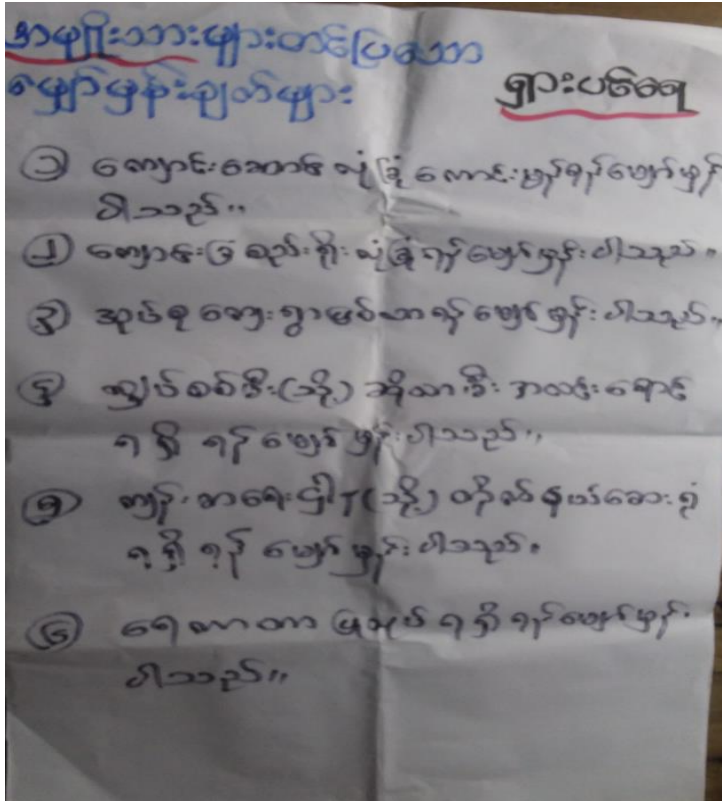 အမျိုးသားများတင်ပြသော
မျှော်မှန်းချက်များ
ရှားပင်ရေ
၁ ကျောင်းဆောင် လုံခြုံကောင်းမွန်ရန်မျှော်မှန်း
ပါသည်။
၂ ကျောင်းခြံစည်းရိုး လုံခြုံရန်မျှော်မှန်းပါသည်။
၃ အုပ်စု ကျေးရွာ ရန်မျှော်မှန်းပါသည်။
၄ လျှပ်စစ်မီး(သို့) ဆိုလာမီး အလင်းရောင်
ရရှိ ရန်မျှော်မှန်းပါသည်။
၅ ကျန်းမာရေးဌါန(သို့) တိုက်နယ်ဆေးရုံ
ရရှိ ရန် မျှော်မှန်းပါသည်။
၆ ရေကာတာ ပြုလုပ် ရရှိရန်မျှော်မှန်း
ပါသည်။